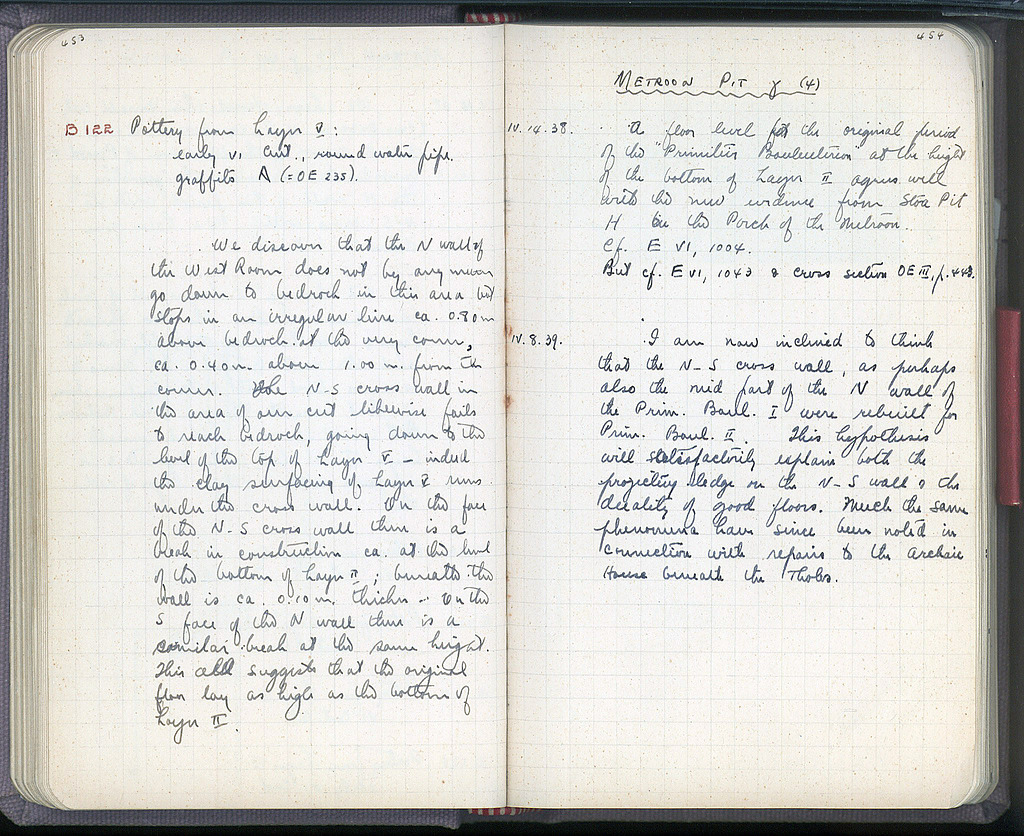 453
B 122 Pottery from Layer V:
early VI cent., round water pipe.
graffito A (= OE 235).
We discover that the N wall of
the West Room does not by any means
go down to bedrock in this area but
stops in an irregular line ca. 0.80 m
above bedrock at the very corner,
ca. 0.40 m. above 1.00 m. from the
corner. The N-S cross wall in
the area of our cut likewise fails
to reach bedrock, going down to the
level of the top of Layer V – indeed
the clay surfacing of Layer V runs
under the cross wall. On the face
of the N-S cross wall there is a
break in construction ca. at the level
of the bottom of Layer II; beneath the
wall is ca. 0.10 m. thicker. On the
S face of the N wall there is a
similar break at the same height.
This all suggests that the original
floor lay as high as the bottom of
Layer II.
454
METROON PIT γ (4)
IV.14.38. A floor level for the original period
of the "Primitive Bouleuterion" at the height
of the bottom of Layer II agrees well
with the new evidence from Stoa Pit
H in the Porch of the Metroon.
Cf. E VI, 1004.
But cf. E VI, 1043 & cross section OE III, p. 443.
IV.8.39. I am now inclined to think
that the N-S cross wall, as perhaps
also the mid part of the N wall of
the Prim. Boul. I were rebuilt for
Prim. Boul. II. This hypothesis
will satisfactorily explain both the
projecting ledge on the N-S wall & the
duality of good floors. Much the same
phenomena have since been noted in
connection with repairs to the archaic
House beneath the Tholos.